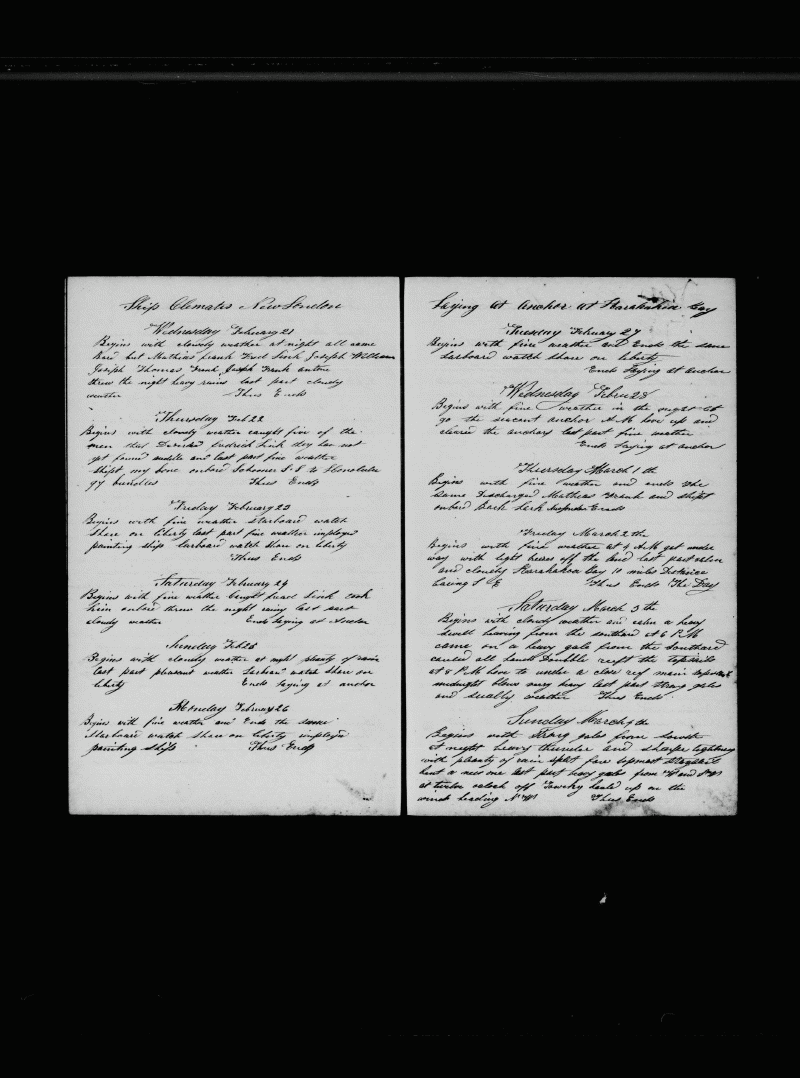 Ship Clematis New London
Wednesday February 21
Begins with cloudy weather at night all came
bord but Mathias frank Fred Sink Joseph William
Joseph Thomas Frank Joseph Frank antone
threw the night heavy rains last part cloudy
weather Thus Ends
Thursday Feb 22
Begins with cloudy weather caught five of the
men that Fredrick Sink they has not
got found middle and last part fine weather
shipt my bone onbord Schooner S.S to Honolulu
97 bundles Thus Ends
Friday February 23
Begins with fine weather starboard watch
Shore on liberty last part fine weather imployed
painting ship larboard watch shore on liberty
Thus Ends
Saturday February 24
Begins with fine weather caught Sink took
him onbord threw the night rainy last part
cloudy weather Ends laying at Anchor
Sunday Feb 25
Begins with cloudy weather at night plenty of rain
last part pleasent weather Larbord watch shore on
liberty Ends laying at anchor
Monday February 26
Begins with fine weather and Ends the same
Starboard watch Shore on liberty imployed
painting ship Thus Ends
Laying at anchor at Karakakoa Bay
Tuesday February 27
Begins with fine weather and Ends the same
larboard watch shore on liberty
Ends laying at anchor
Wednesday Febru 28
Begins with fine weather in the night let
go the second anchor A.M hove up and
cleared the anchors last part fine weather
Ends laying at anchor
Thursday March 1th
Begins with fine weather and ends the
same Discharged Mathias Frank and shipt
onbord Ends
Friday March 2 the
Begins with fine weather at 4 A.M got under
way with light breses off the land last part calm
and cloudy Karakakoa Bay 10 miles Distance
baring S E Thus Ends The Day
Saturday March 3 th
Begins with cloudy weather and calm a heavy
swell heaving from the southard At 6 P.M
came on a heavy gale from the Southard
called all hands Doubble reeft the topsails
at 8 P.M hove to under a close ref main topsail
midnight blows very heavy last part strong gales
and squally weather Thus Ends
Sunday March 4 th
Begins with strong gales from South
at night heavy thunder and sharpe lightning
with pleanty of rain split fore topmost staysail
bent a new one last part heavy gales from W and SW
at twelve oclock off hauld up on the
wind heading N W Thus Ends